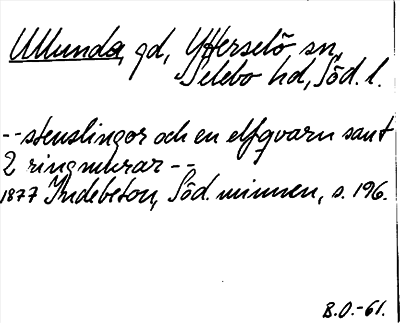 Ullunda, gd, Ytterselö sn,
Selebo hd, Söd. l.
-- stenslingor och en elfqvarn samt
2 ringmurar --
1877 Indebetou, Söd. minnen, s. 196.
B.O.-61.